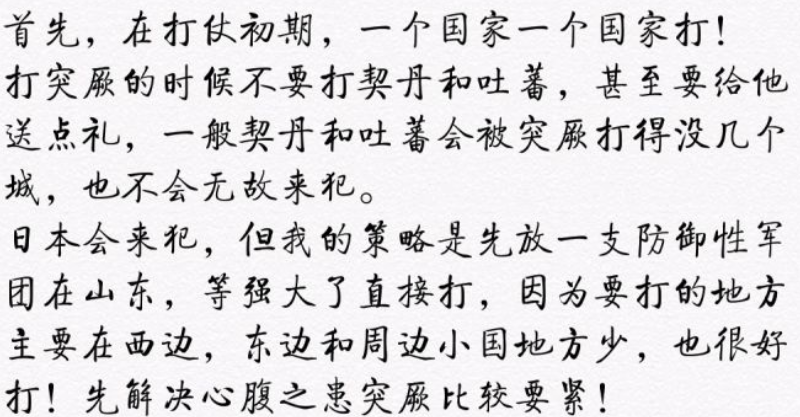 首先，在打仗初期，一个国家一个国家打！
打突厥的时候不要打契丹和吐蕃，甚至要给他
送点礼，一般契丹和吐蕃会被突厥打得没几个
城，也不会无故来犯。
日本会来犯，但我的策略是先放一支防御性军
团在山东，等强大了直接打，因为要打的地方
主要在西边，东边和周边小国地方少，也很好
打！先解决心腹之患突厥比较要紧！